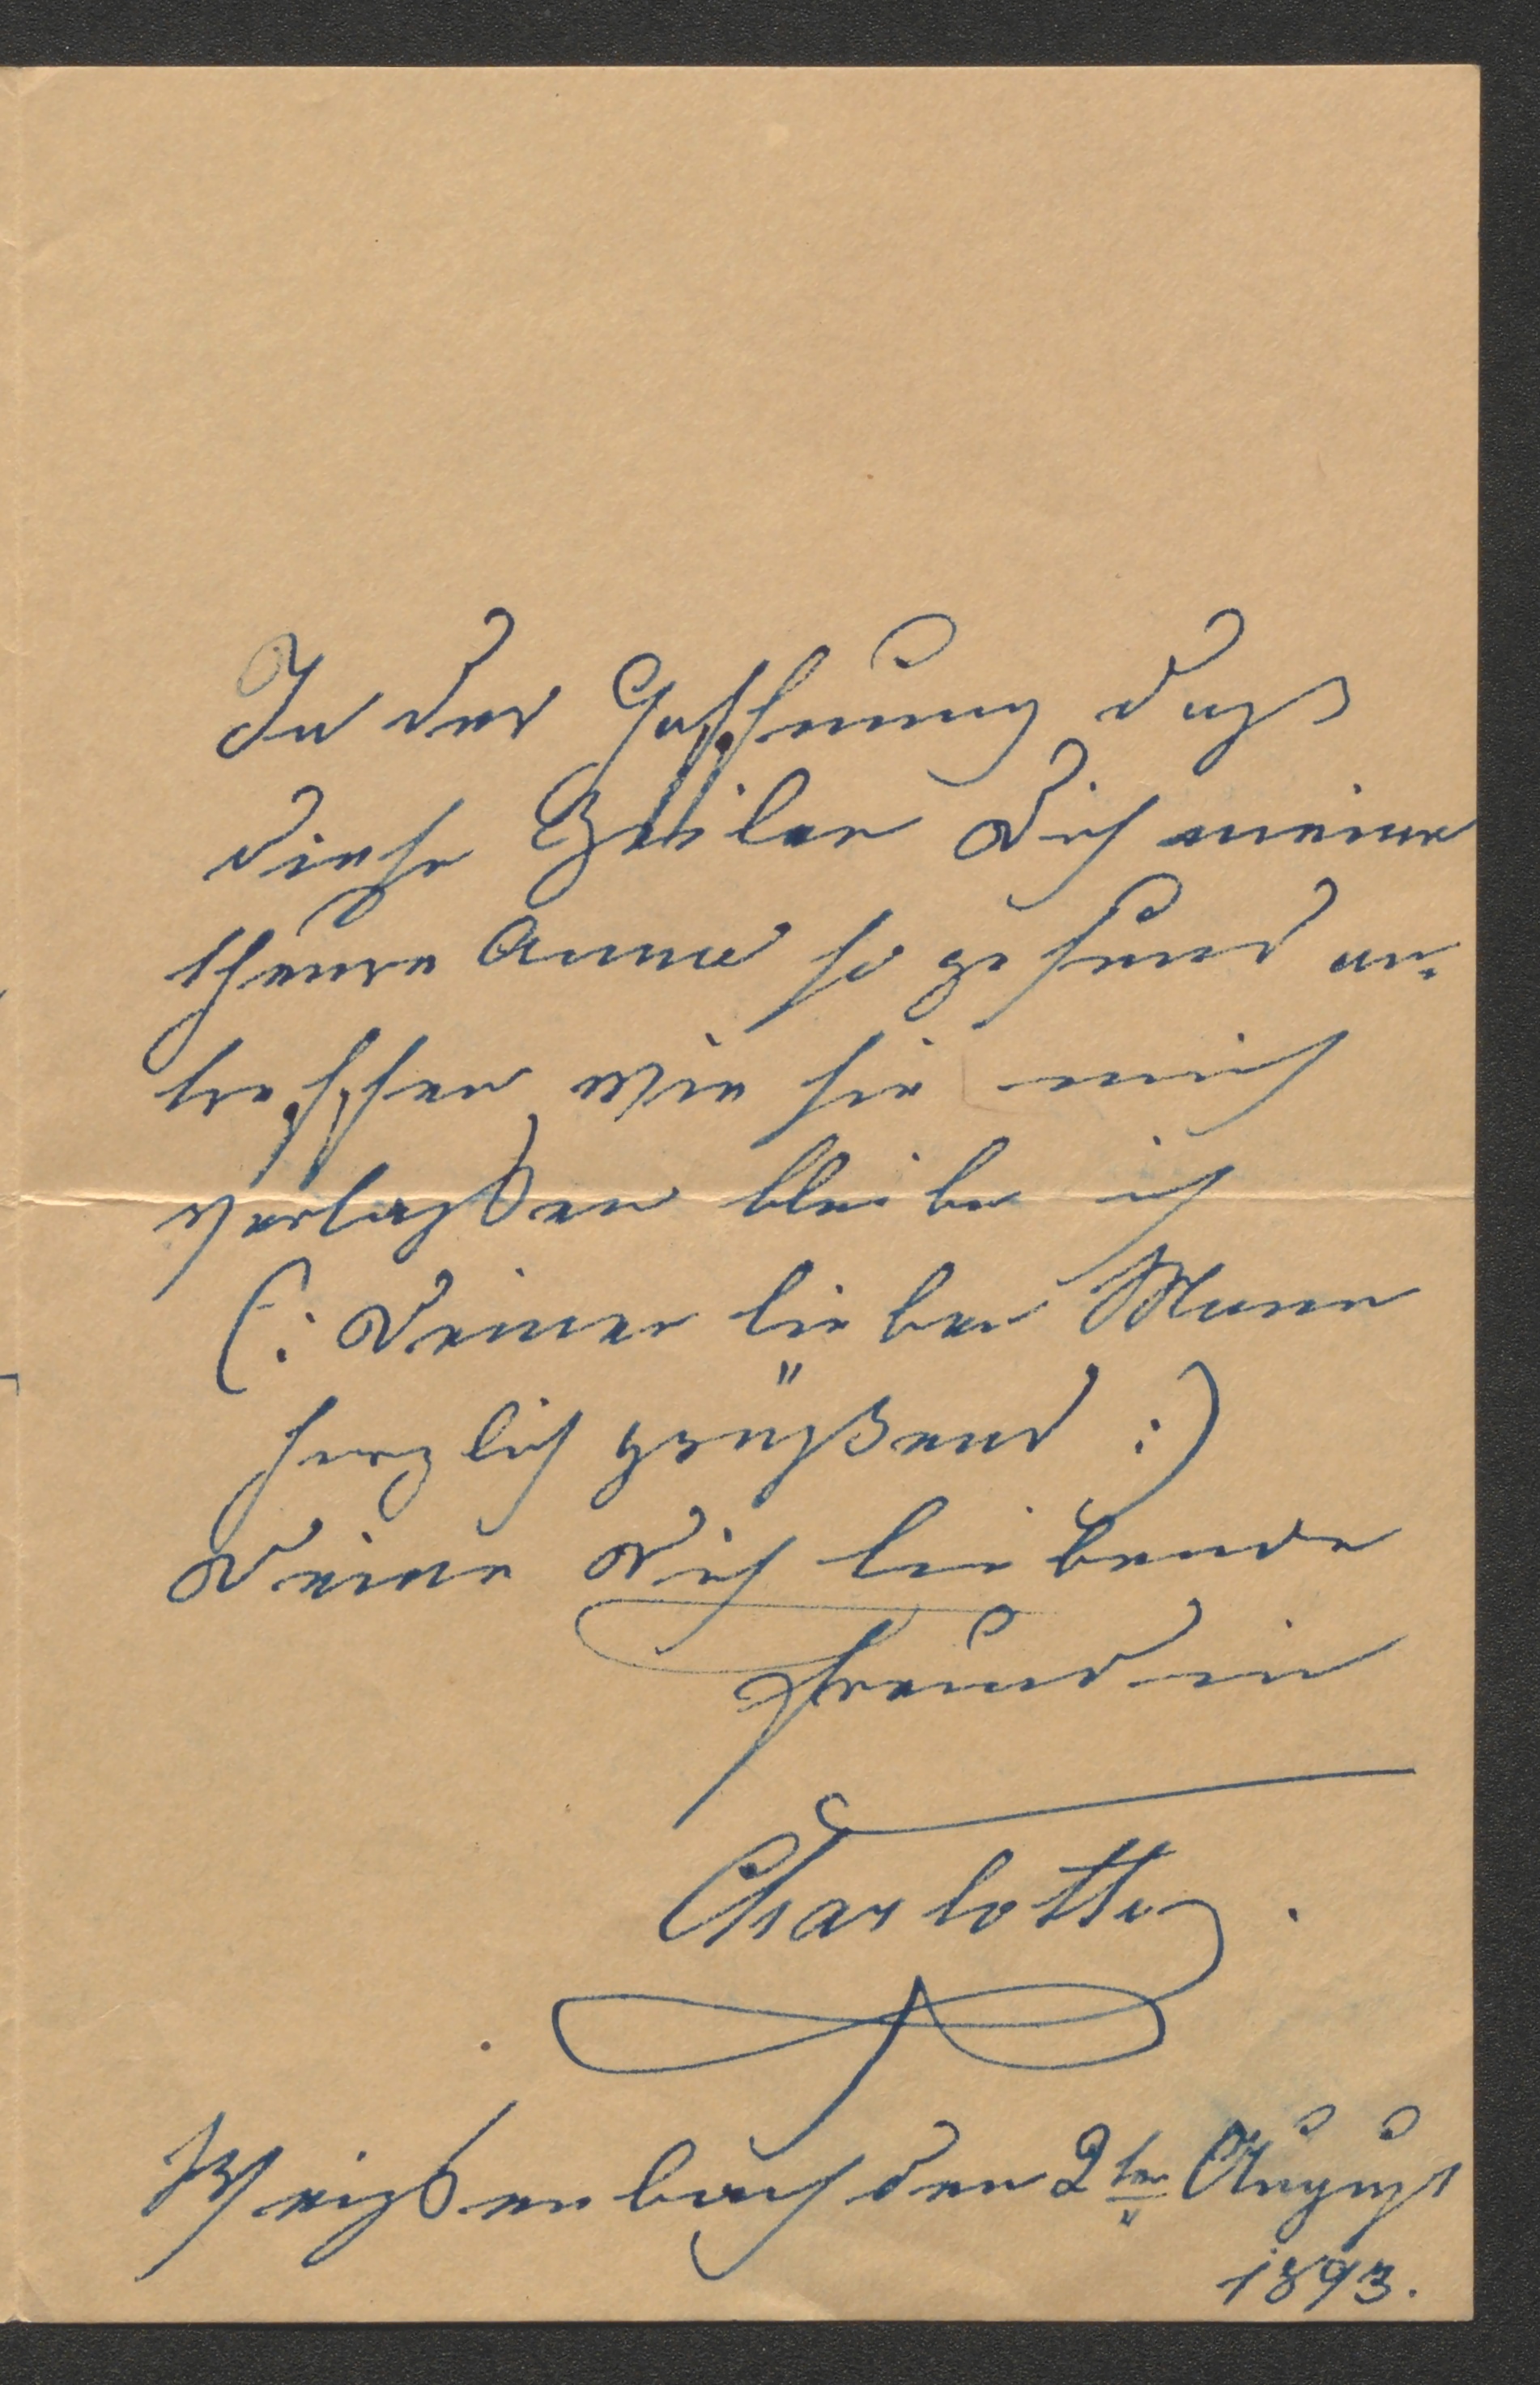 In der Hoffnung dass
diese Zeilen Dich meine
theure Anna so gesund an-
treffen wie sie mich
verlaßen bleibe ich
(: Deinen lieben Mann
herzlich grüßend :)
Deine Dich liebende
Freundin
Charlotte.
Weißenbach den 2ten August
1893.